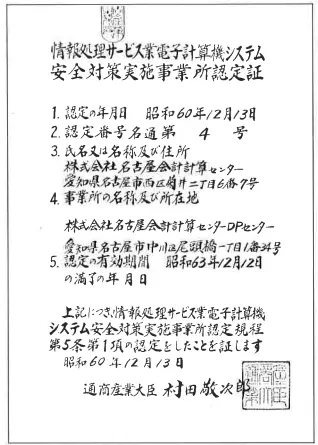 情報処理サービス業電子計算機システム
安全対策実施事業所認定証
1. 認定の年月日 昭和60年12月13日
2. 認定番号名通第 4 号
3. 氏名又は名称及び住所
株式会社名古屋会計計算センター
愛知県名古屋市西区菊井二丁目6番7号
4. 事業所の名称及び所在地
株式会社名古屋会計計算センターDPセンター
愛知県名古屋市中川区尾頭橋一丁目1番34号
5. 認定の有効期間 昭和63年12月12日
の満了の年月日
上記につき情報処理サービス業電子計算機
システム安全対策実施事業所認定規程
第5条第1項の認定をしたことを証します
昭和60年12月13日
通商産業大臣 村田敬次郎